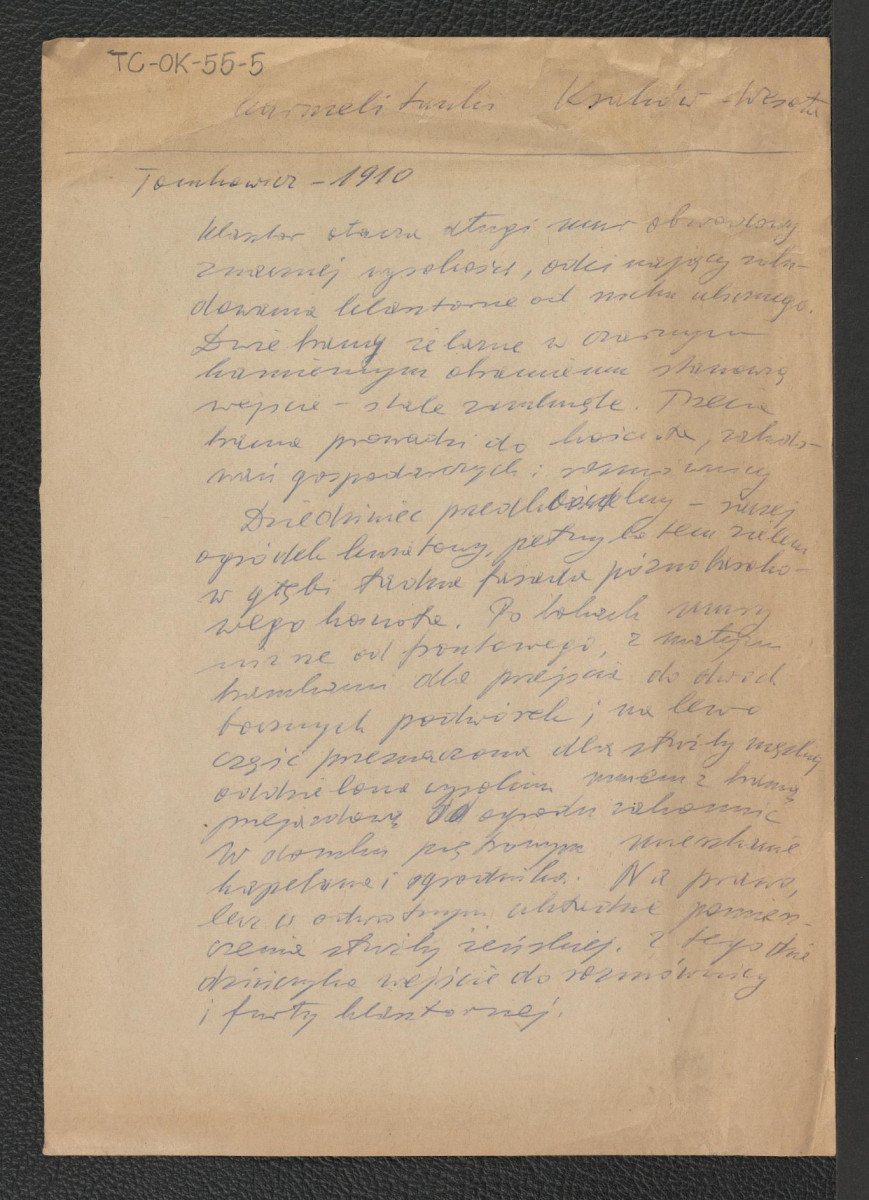 TC-OK-55-5
Karmelitanki Kraków - Wesoła
Tomkowicz - 1910
Klasztor otacza długi mur obwodowy
znacznej wysokości, odcinający zabu-
dowania klasztorne od ruchu ulicznego.
Dwie bramy żelazne w czarnym
kamiennym obramieniu stanowią
wejście - stale zamknięte. Trzecia
brama prowadzi do kościoła, zabudo-
wań gospodarczych i rozmównicy
Dziedziniec przedkościelny - raczej
ogródek kwiatowy, pełny latem zieleni
w głębi ładna fasada późnobaroko-
wego kościoła. Po bokach mury
niższe od frontowego, z małymi
bramkami dla przejścia do dwóch
bocznych podwórek; na lewo
część przeznaczona dla służby męskiej
oddzielona wysokim murem z bramą
przejazdową od ogrodu zakonnic
W domku piętrowym mieszkanie
kapelana i ogrodnika. Na prawo,
lecz w odwrotnym układzie pomiesz-
czenia służby żeńskiej. Z tego dzie
dzińczyka wejście do rozmównicy
i furty klasztornej.